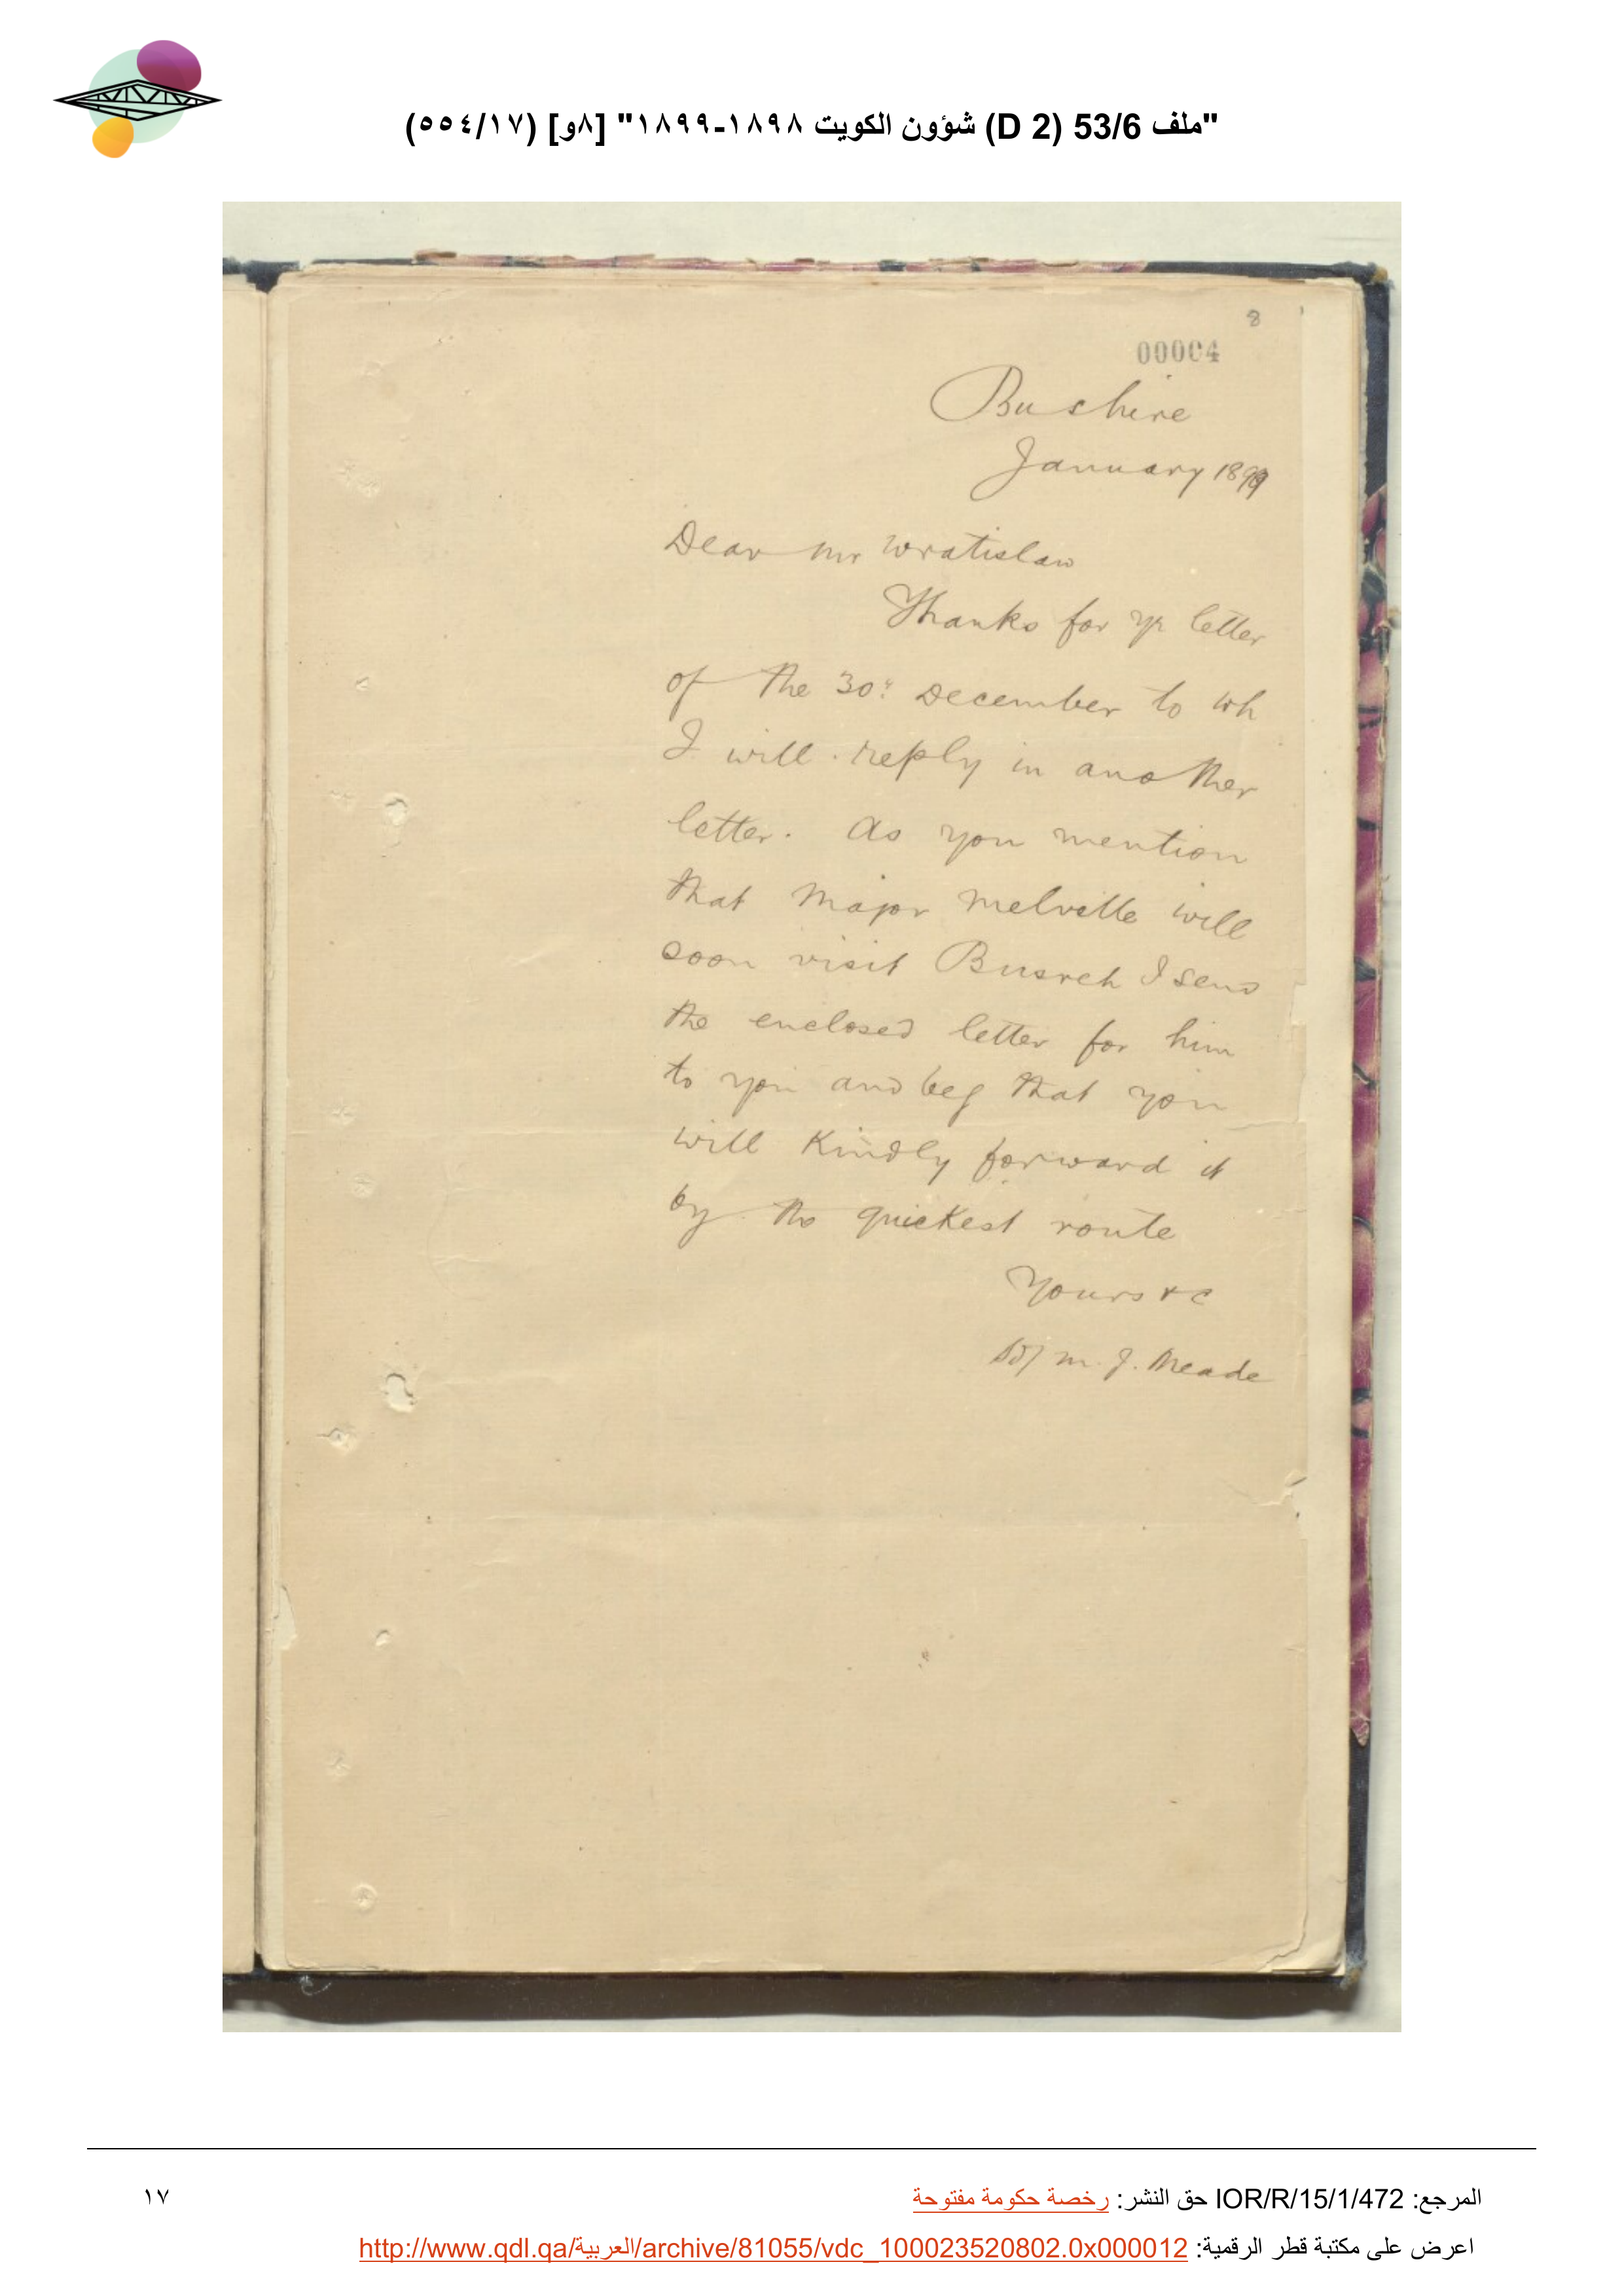 "ملف 53/6 (D 2) شؤون الكويت ١٨٩٨-١٨٩٩" [٨و] (٥٥٤/١٧)
8
00004
Bushire
January 1899
Dear Mr Wratislaw
Thanks for yr letter
of the 30th December to wh
I will reply in another
letter. As you mention
that Major Melville will
soon visit Busreh I send
the enclosed letter for him
to you and beg that you
will kindly forward it
by the quickest route
Yours &c
Sd/ M. J. Meade
المرجع: IOR/R/15/1/472 حق النشر: رخصة حكومة مفتوحة
١٧
اعرض على مكتبة قطر الرقمية: http://www.qdl.qa/العربية/archive/81055/vdc_100023520802.0x000012